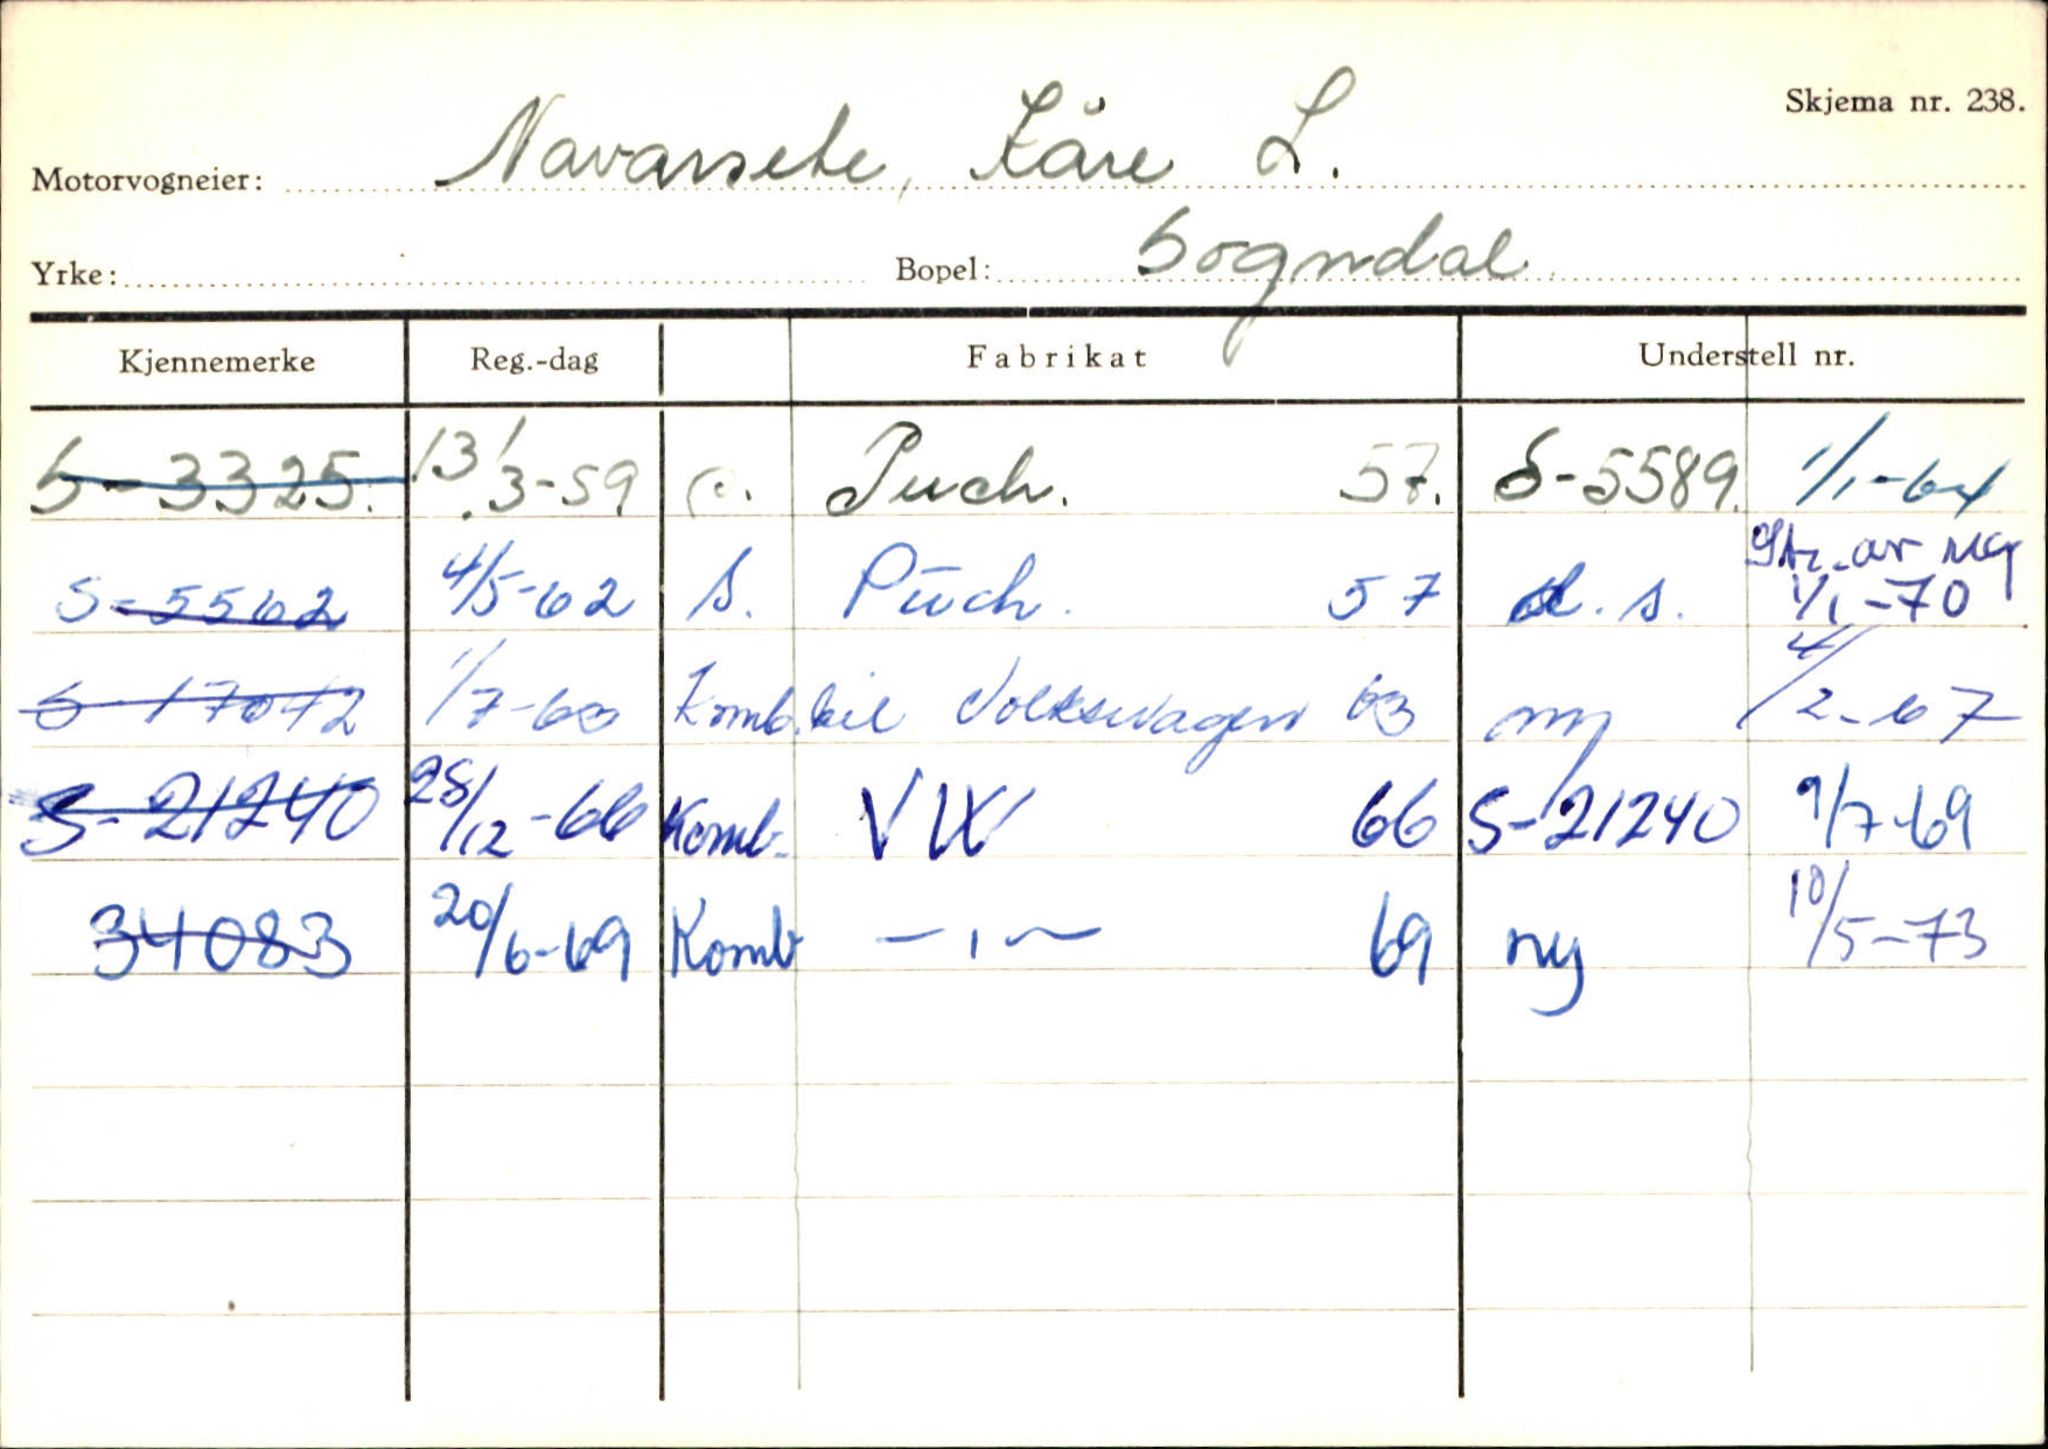 Skjema nr. 238.
Motorvogneier: Navarsete, Kåre L.
Yrke: Bopel: Sogndal
Kjennemerke Reg.-dag Fabrikat Understell nr.
S-3325. 13/3-59 Puch. 57. S-5589. 1/1-64
Str. av reg
S-5562 4/5-62 s. Püch. 57 d.s. 1/1-70
S-17072 1/7-63 Komb.bil Volkswagen 63 ny 4/2-67
S-21240 28/12-66 Komb. VW 66 S-21240 9/7-69
34083 20/6-69 Komb —"— 69 ny 10/5-73